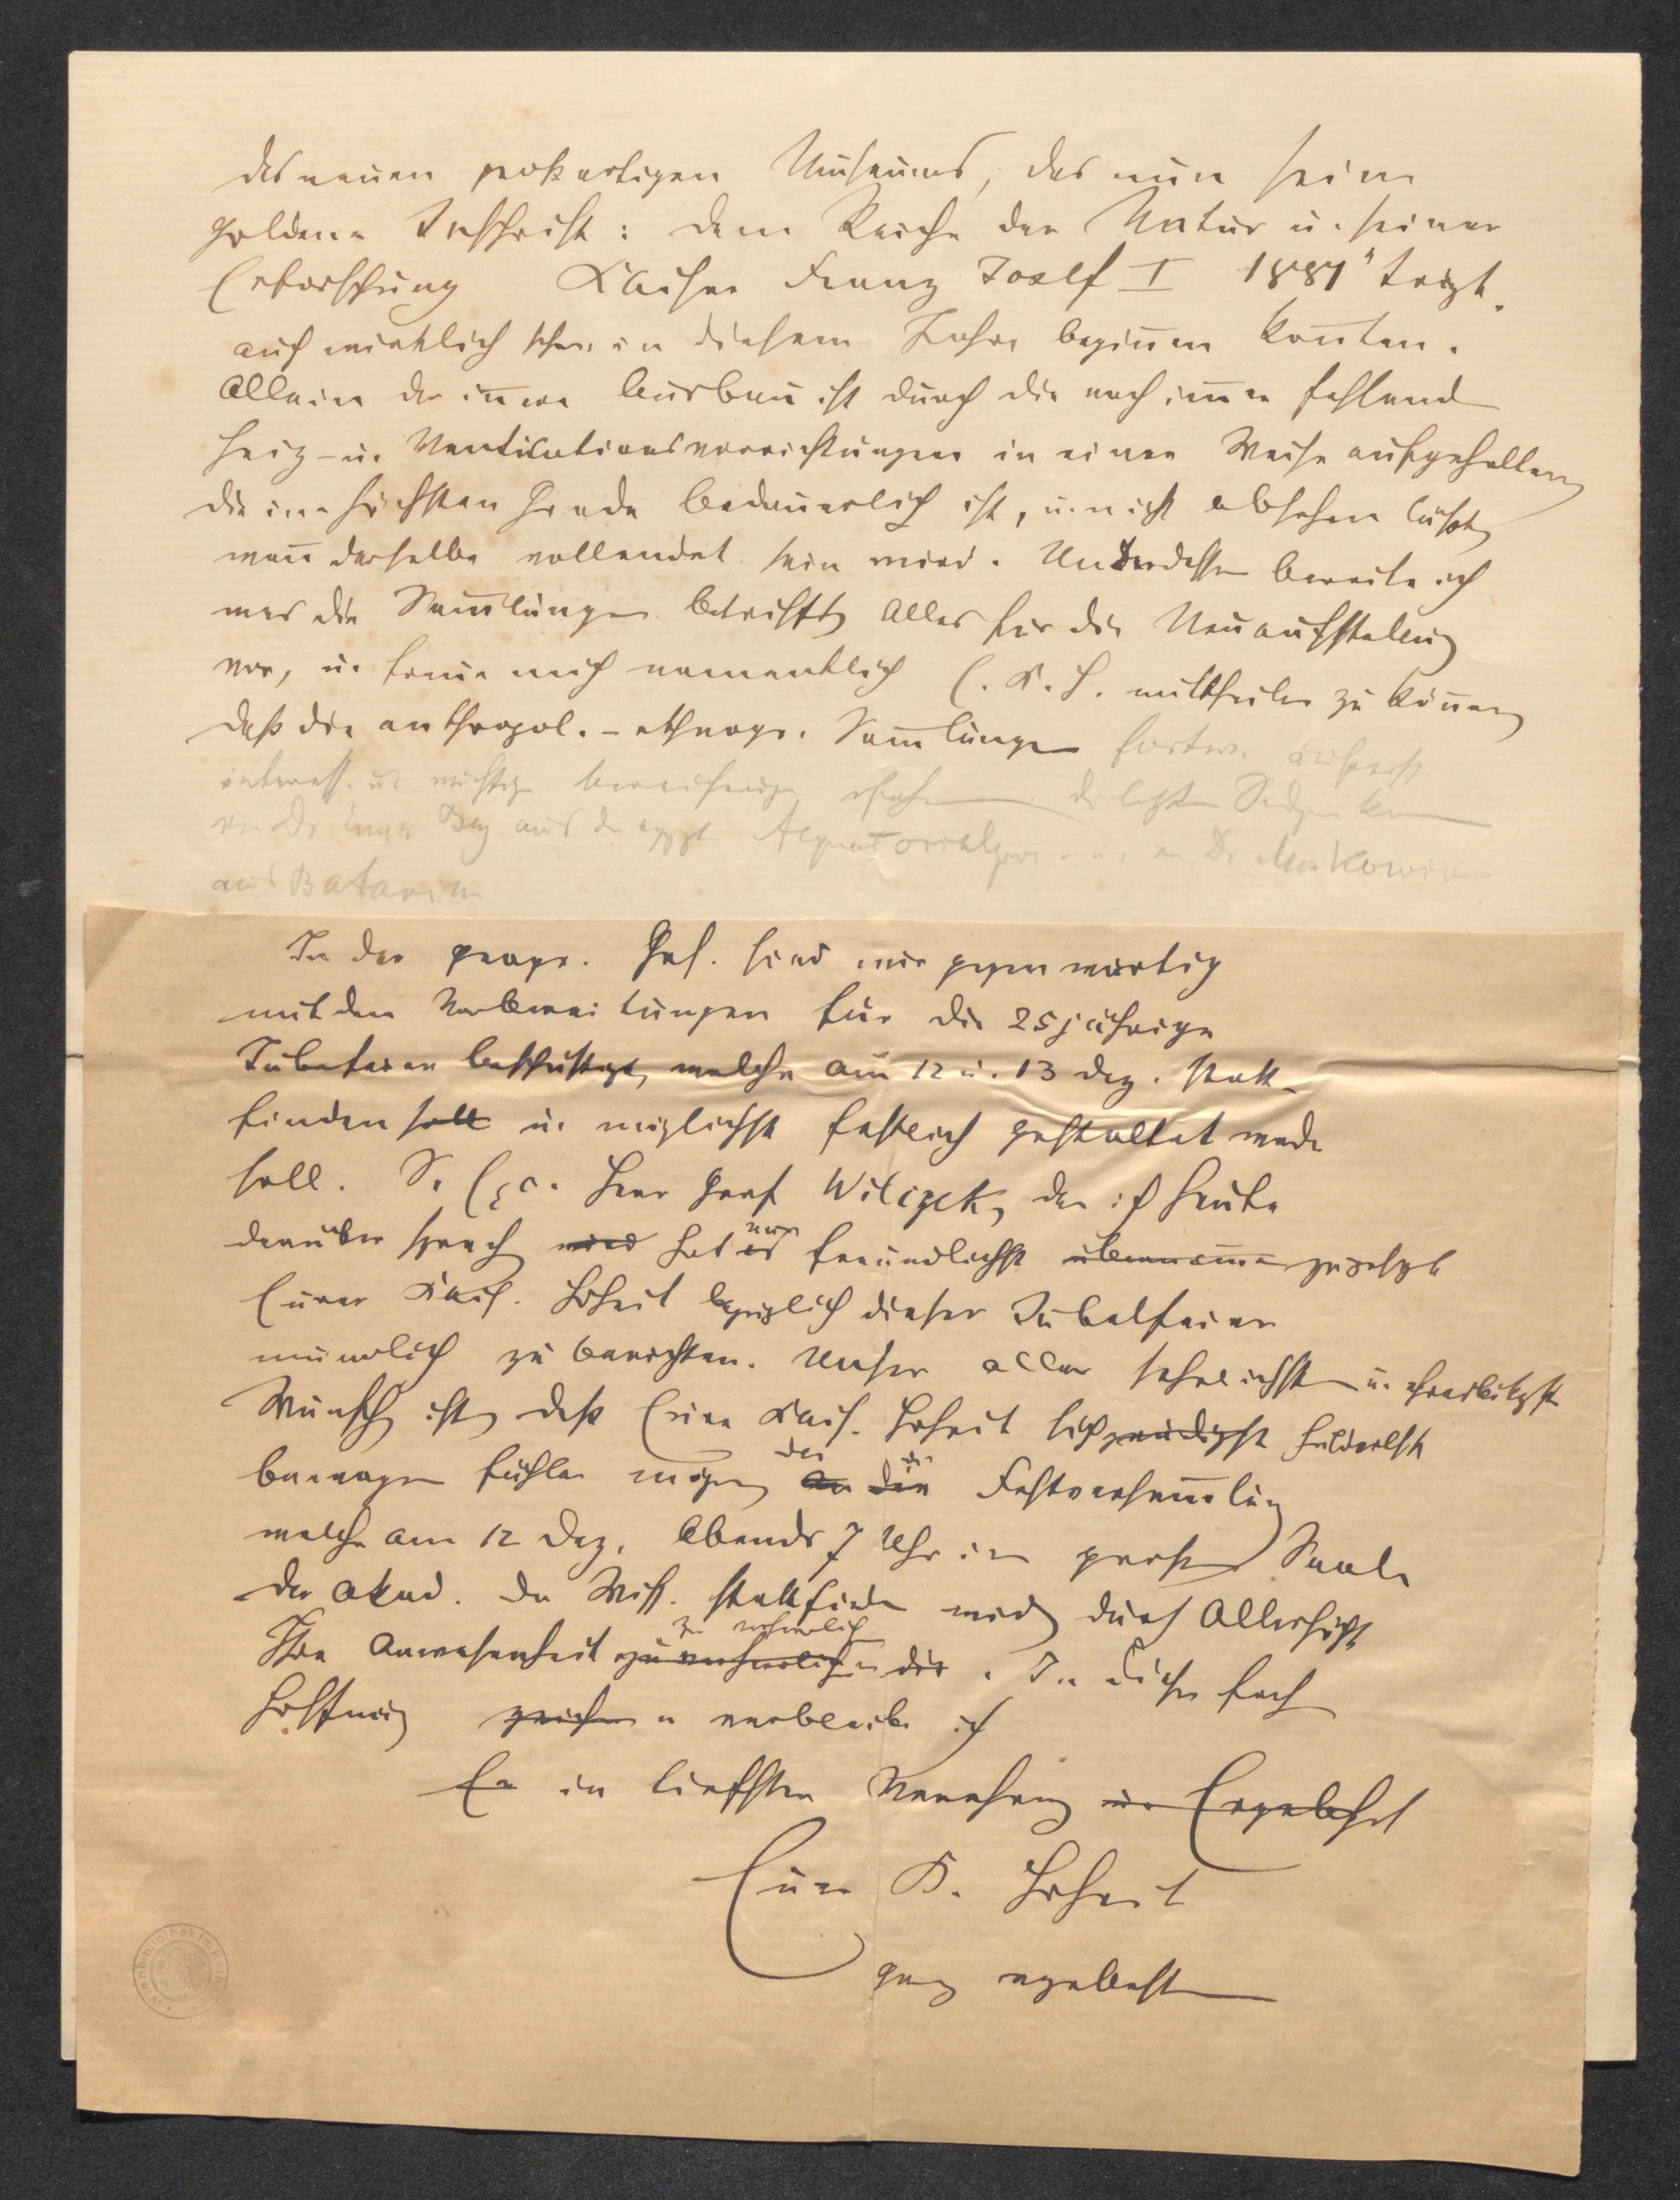 des neuen großartigen Museums, das nun seine
goldene Inschrift: Dem Reiche der Natur u. seiner
Erforschung Kaiser Franz Josef I 1881" trägt.
auch wirklich schon in diesem Jahre begiñen koñten.
Allein der iñere Ausbau ist durch die noch im̄er fehlend
Heiz- u. Ventilationsvorrichtungen in einer Weise aufgehalten,
die im höchsten Grade bedauerlich ist, u. nicht absehen läßt,
wañ derselbe vollendet sein wird. Unterdessen bereite ich
was die Sam̄lungen betrifft, Alles für die Neuaufstellung
vor, u. freue mich namentlich E. K. H. mittheilen zu köñen,
daß die anthropol.-ethnogr. Sam̄lungen fortw. äußerst
interess. u. wichtige Bereicherung die letzten
von Dr Emin Bey aus d. egypt. Aequatorialprov.
aus Batavia
In der geogr. Ges. sind wir gegenwärtig
mit den Vorbereitungen für die 25jährige
Jubelfeier beschäftigt, welche am 12 u. 13 Dez. statt-
finden soll u. möglichst festlich gestaltet werde
soll. S. Exc. Herr Graf Wilczek, den ich heute
darüber sprach wird hat es freundlichst übernom̄en zugesagt
Eurer Kais. Hoheit bezüglich dieser Jubelfeier
mündlich zu berichten. Unser aller sehnlichster u. ehrerbietigster
Wunsch ist, daß Eure Kais. Hoheit sich gnädigst huldvollst
bewogen fühlen mögen, an die Festversam̄lung
welche am 12 Dez. Abends 7 Uhr im großen Saale
der Akad. der Wiss. stattfinden wird, durch Allerhöchst
Ihre Anwesenheit zu verherrlichen zu verherrlichen. In dieser
Hoffnung verbleibe ich
in tiefster Verehrung u. Ergebenheit
Eurer K. Hoheit
ganz ergebenster